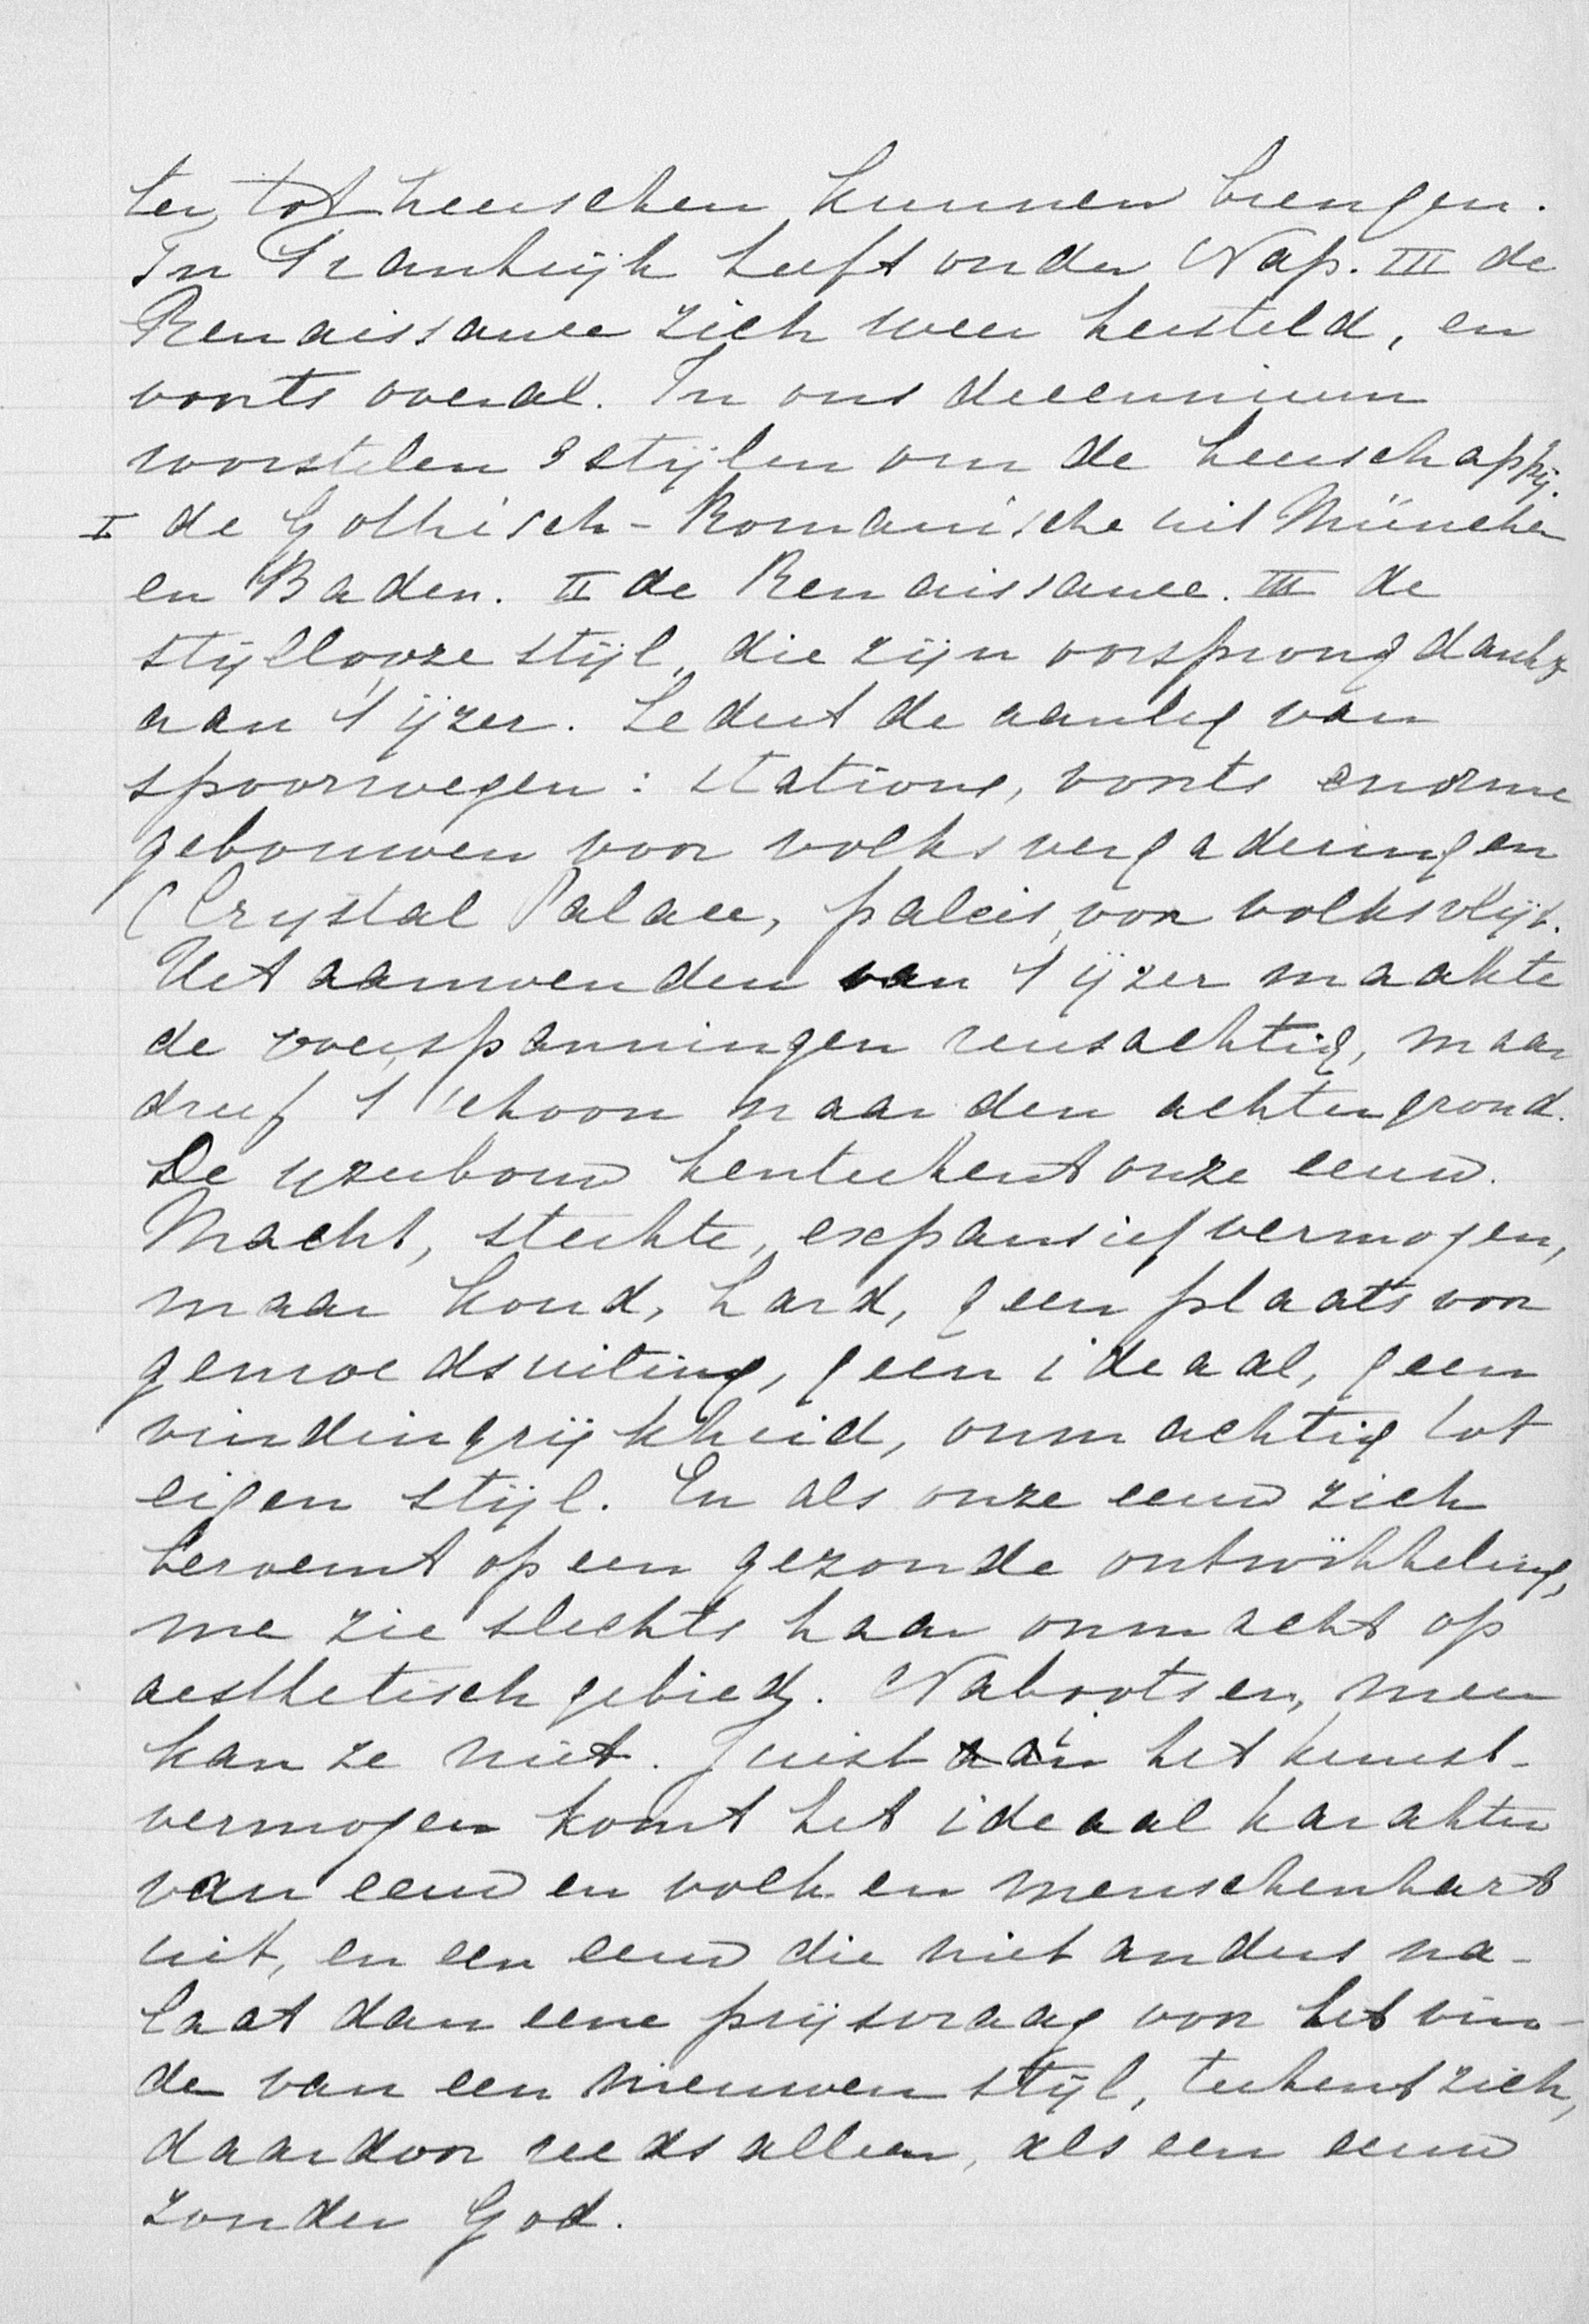 ten tot heerschen kunnen brengen.
In Frankrijk heeft onder Nap. III de
Renaissance zich weer hersteld, en
voorts overal. In ons decennium
worstelen 3 stijlen om de heerschappij.
I de Gothisch-Romanische uit München
en Baden. II de Renaissance. III de
stijllooze stijl, die zijn oorsprong dankt
aan 't ijzer. Sedert de aanleg van
spoorwegen: stations, voorts enorme
gebouwen voor volksvergaderingen
(Crystal Palace, paleis voor volksvlijt.
Het aanwenden van 't ijzer maakte
de overspanningen reusachtig, maar
dreef 't schoon naar den achtergrond.
De ijzerbouw kenteekent onze eeuw.
Macht, sterkte, expansief vermogen,
maar koud, hard, geen plaats voor
gemoedsuiting, geen ideaal, geen
vindingrijkheid, onmachtig tot
eigen stijl. En als onze eeuw zich
beroemt op een gezonde ontwikkeling,
me zie slechts haar onmacht op
aesthetisch gebied. Nabootsen, meer
kan ze niet. Juist in het kunst-
vermogen komt het ideaal karakter
van eeuw en volk en menschenhart
uit, en een eeuw die niet anders na-
laat dan eene prijsvraag voor het vin-
den van een nieuwen stijl, teekent zich,
daardoor reeds alleen, als een eeuw
zonder God.